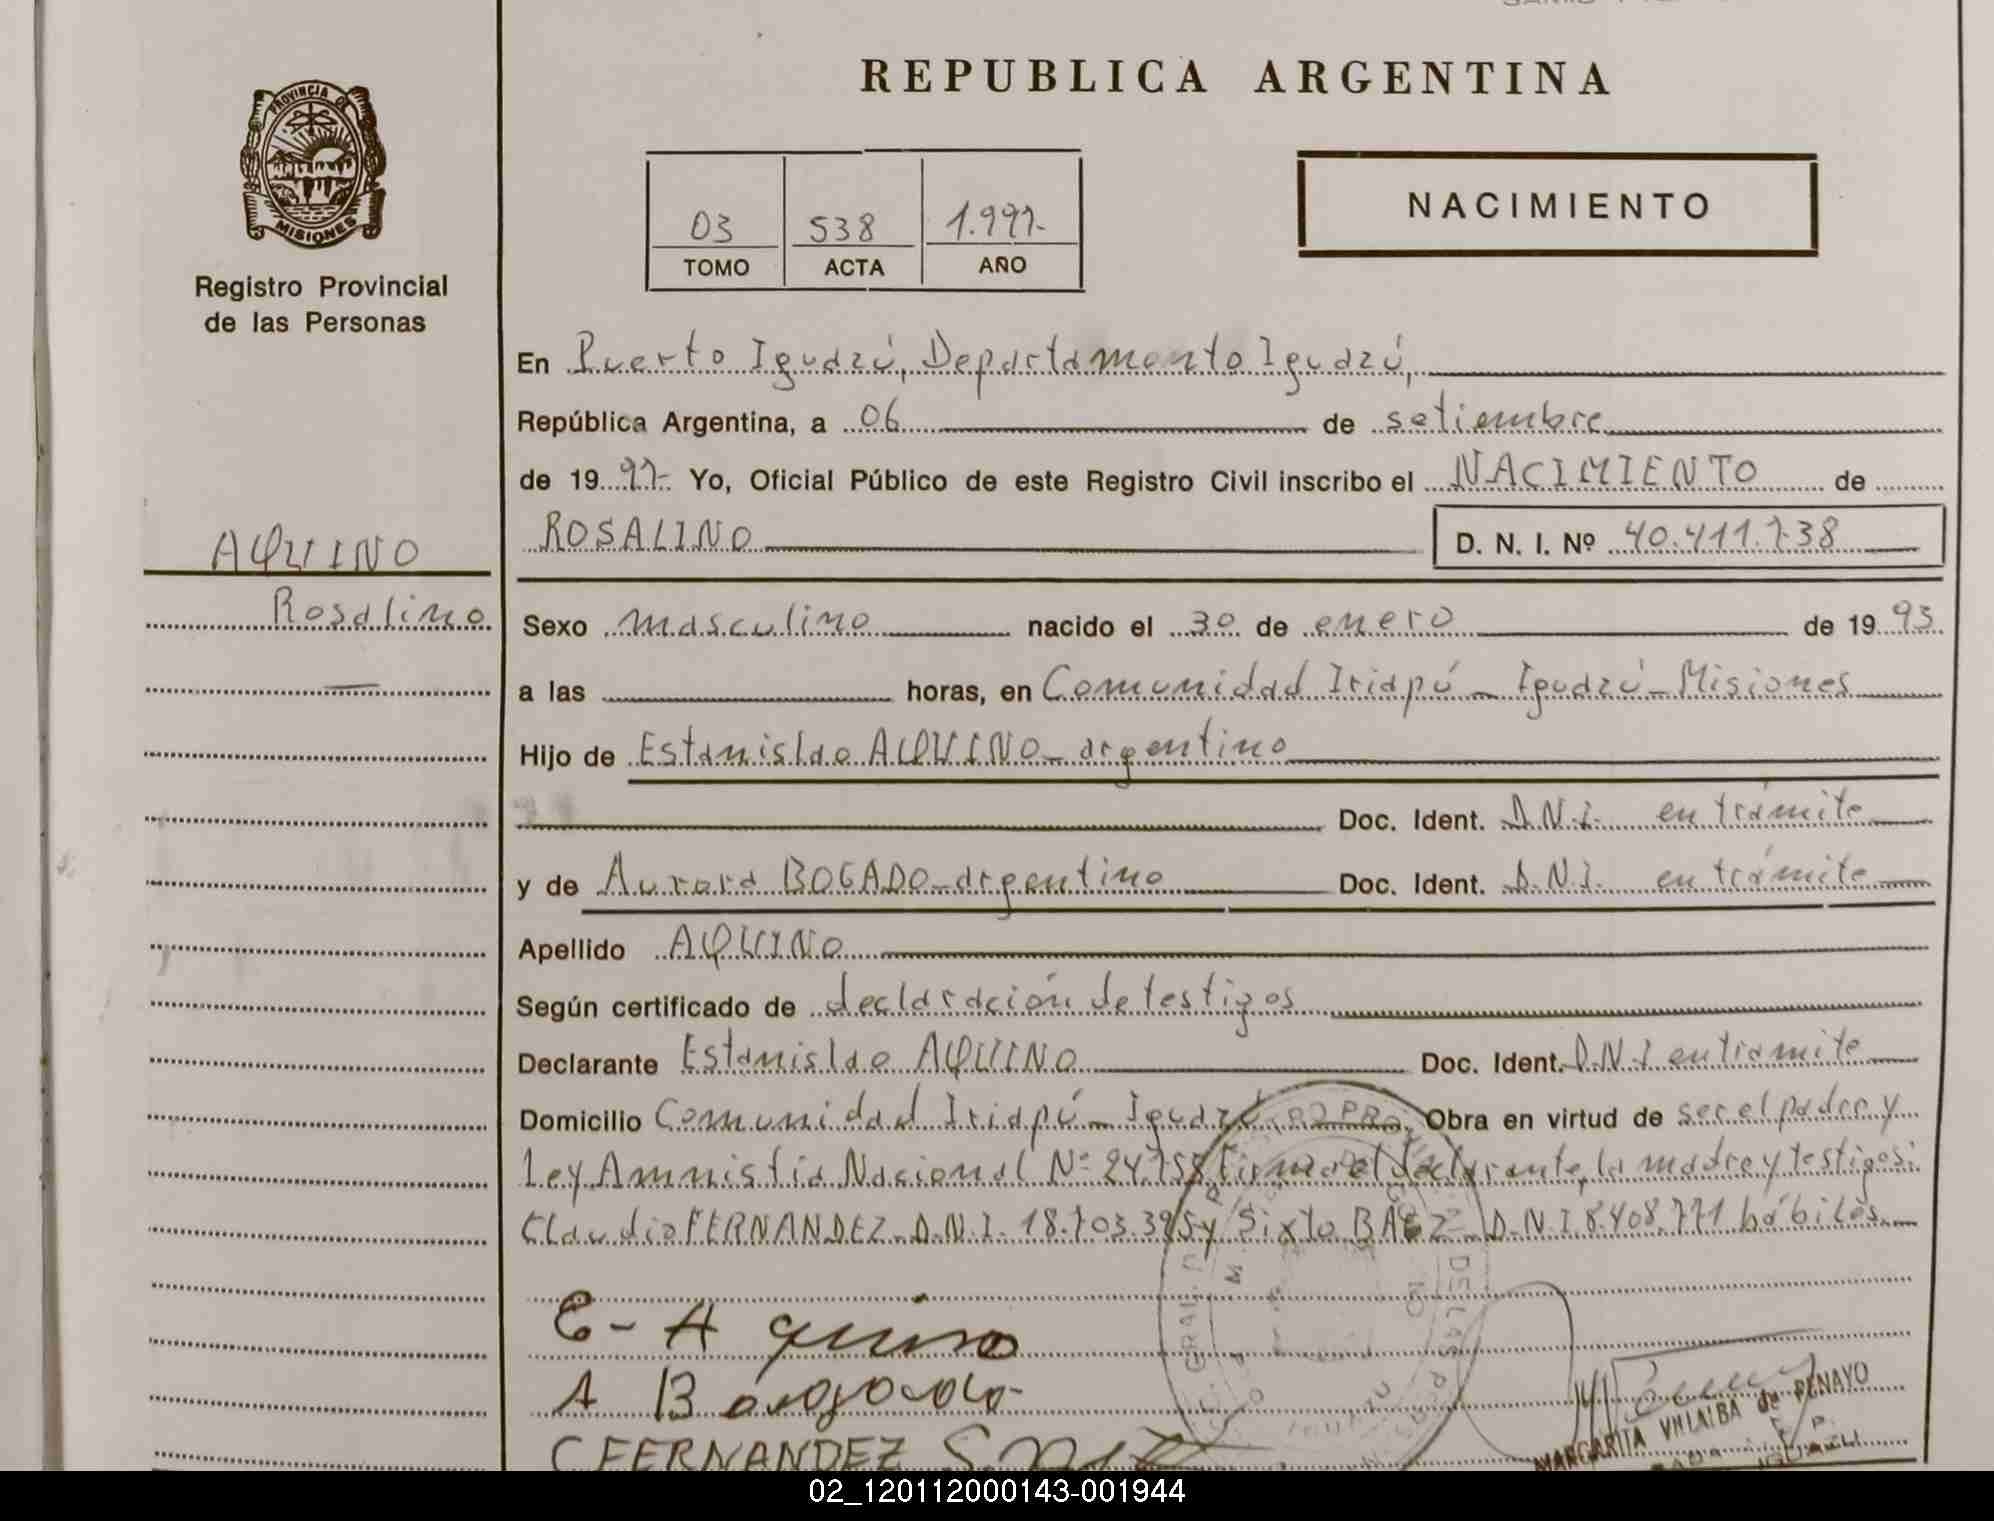 REPUBLICA ARGENTINA
PROVINCIA DE
MISIONES
Registro Provincial
de las Personas
03 538 1.997-
TOMO ACTA AÑO
NACIMIENTO
En Puerto Iguazú, Departamento Iguazú,
República Argentina, a 06 de setiembre
de 19 97- Yo, Oficial Público de este Registro Civil inscribo el NACIMIENTO de
ROSALINO D. N. I. Nº 40.411.738
AQUINO
Rosalino
Sexo masculino nacido el 30 de enero de 19 93
a las horas, en Comunidad Iriapú - Iguazú - Misiones
Hijo de Estanislao AQUINO - argentino
Doc. Ident. D.N.I. en trámite
y de Aurora BOGADO - argentino Doc. Ident. D.N.I. en trámite
Apellido AQUINO
Según certificado de declaración de testigos
Declarante Estanislao AQUINO Doc. Ident. D.N.I en trámite
Domicilio Comunidad Iriapú - Iguazú Obra en virtud de ser el padre y
Ley Amnistia Nacional Nº 24.755 firma el declarante, la madre y testigos:
Claudio FERNANDEZ - D.N.I. 18.703.395 y Sixto BAEZ - D.N.I 8.408.771 hábiles
E - Aquino
A Bogado
C FERNANDEZ
MARGARITA VILLALBA de PENAYO
IGUAZU
02_120112000143-001944